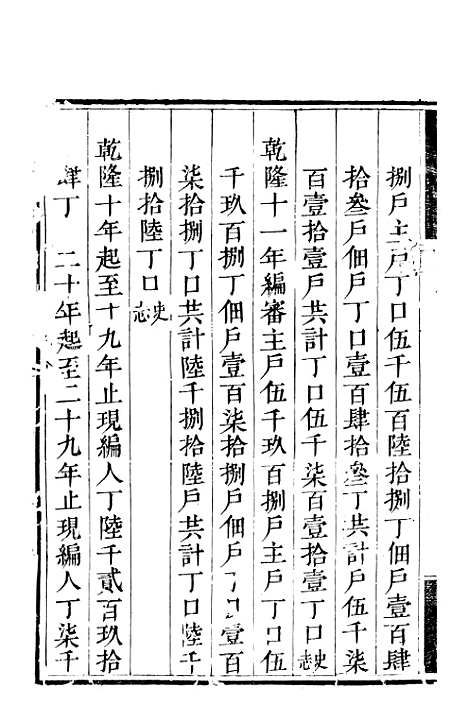 捌戶主戶丁口伍千伍百陸拾捌丁佃戶壹百肆
拾叄戶佃戶丁口壹百肆拾叄丁共計戶伍千柒
百壹拾壹戶共計丁口伍千柒百壹拾壹丁口史志
乾隆十一年編審主戶伍千玖百捌戶主戶丁口伍
千玖百捌丁佃戶壹百柒拾捌戶佃戶丁口壹百
柒拾捌丁口共計陸千捌拾陸戶共計丁口陸千
捌拾陸丁口史志
乾隆十年起至十九年止現編人丁陸千貳百玖拾
肆丁 二十年起至二十九年止現編人丁柒千